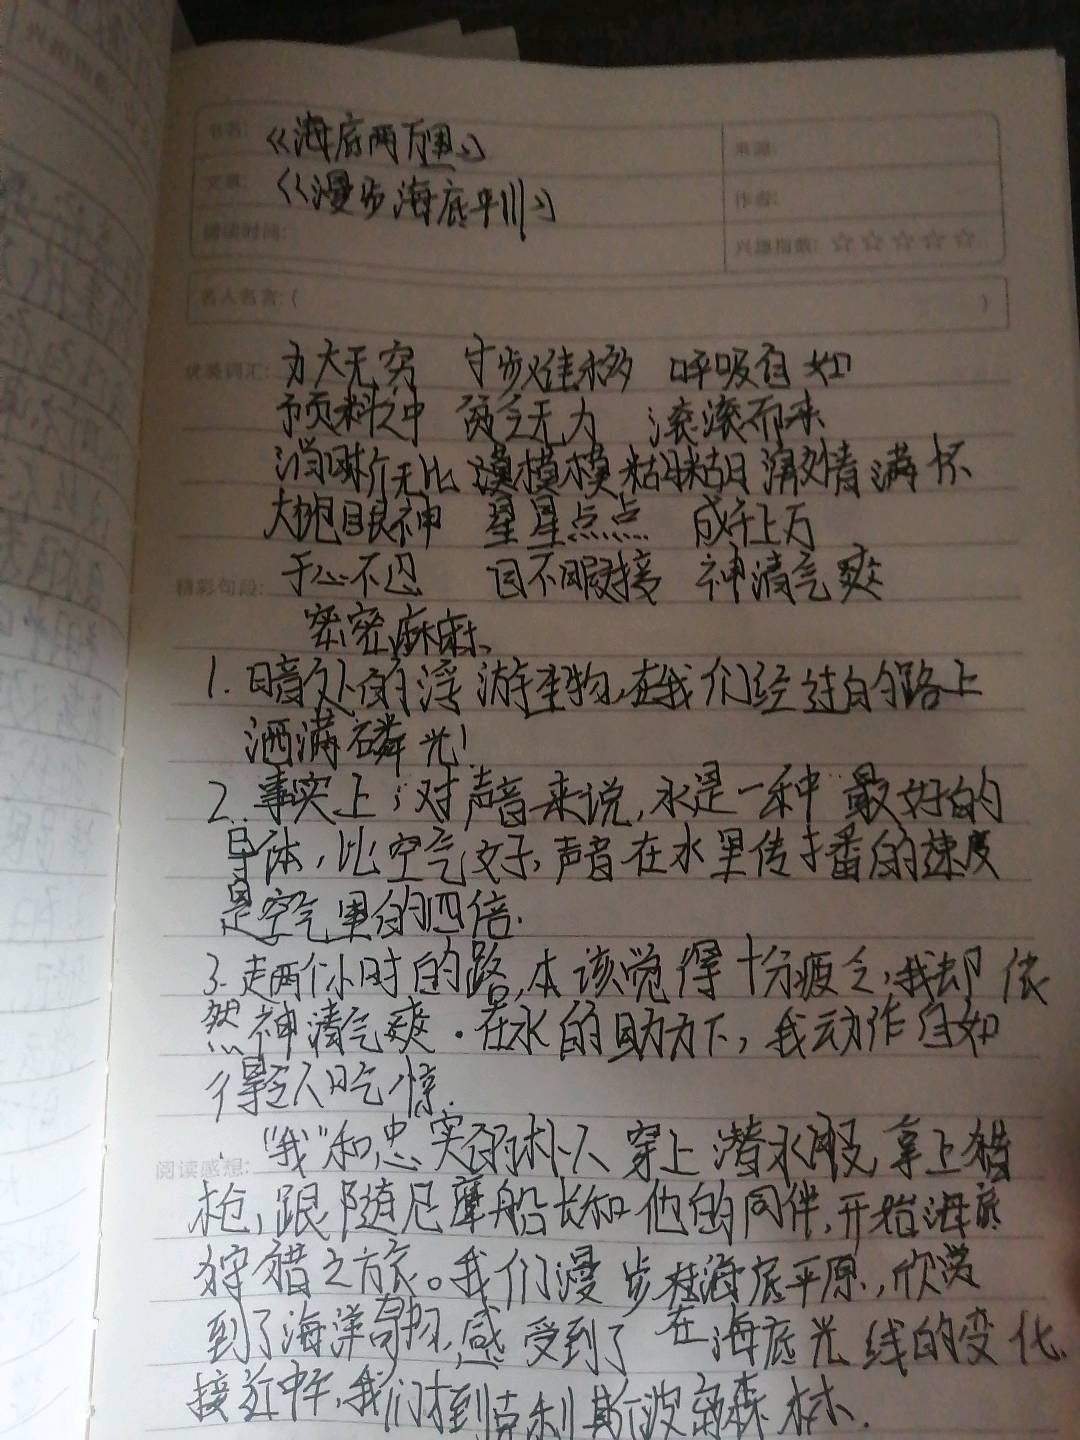 书名: 《海底两万里》
来源:
文章: 《漫步海底平川》
作者:
阅读时间:
兴趣指数: ☆☆☆☆☆
名人名言: ( )
优美词汇: 力大无穷 寸步难移 呼吸自如
预料之中 软弱无力 滚滚而来
清晰无比 模模糊糊 满怀
大饱眼神 星星点点 成千上万
于心不忍 目不暇接 神清气爽
精彩句段:
密密麻麻
1. 暗处的浮游生物,在我们经过的路上
洒满磷光!
2. 事实上,对声音来说,水是一种最好的
导体,比空气好,声音在水里传播的速度
是空气里的四倍.
3. 走两个小时的路,本该觉得十分疲乏,我却依
然神清气爽.在水的助力下,我动作自如
得令人吃惊.
阅读感想: “我”和忠实的仆人穿上潜水服,拿上猎
枪,跟随尼摩船长和他的同伴,开始海底
狩猎之旅。我们漫步在海底平原,欣赏
到了海洋奇物,感受到了在海底光线的变化.
接近中午,我们才到克利斯波岛森林.